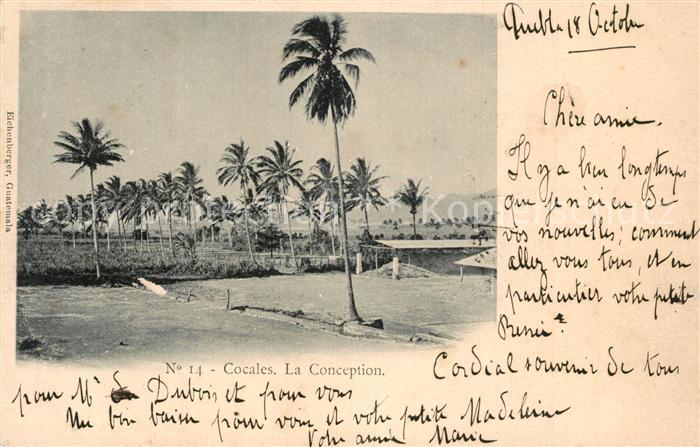 Puebla 18 Octobre
Chère amie.
Il y a bien longtemps
que je n'ai eu de
vos nouvelles; comment
allez vous tous, et en
particulier votre petite
Cordial souvenir de tous
pour Mr Dubois et pour vous
Un bon baiser pour vous et votre petite Madeleine
Votre amie Marie
Eichenberger, Guatemala
No 14 - Cocales. La Conception.
Copyright Kopierschutz